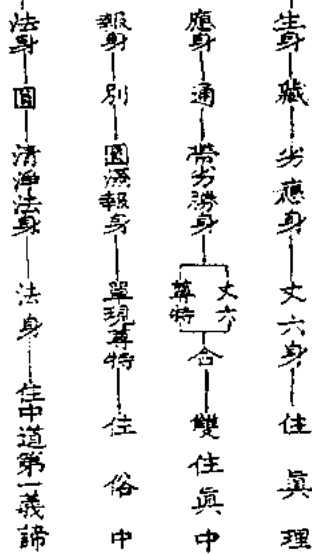 生身—藏—劣應身—丈六身—住眞理
應身—通—帶劣勝身—丈六 尊特—合—雙住眞中
報身—別—圓滿報身—單現尊特—住俗中
法身—圓—清淨法身—法身—住中道第一義諦